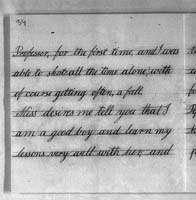 34
Professor, for the first time, and I was
able to skate all the time alone, with
of course getting often, a fall.
Miss desires me tell you that I
am a good boy and learn my
lessons very well with her, and